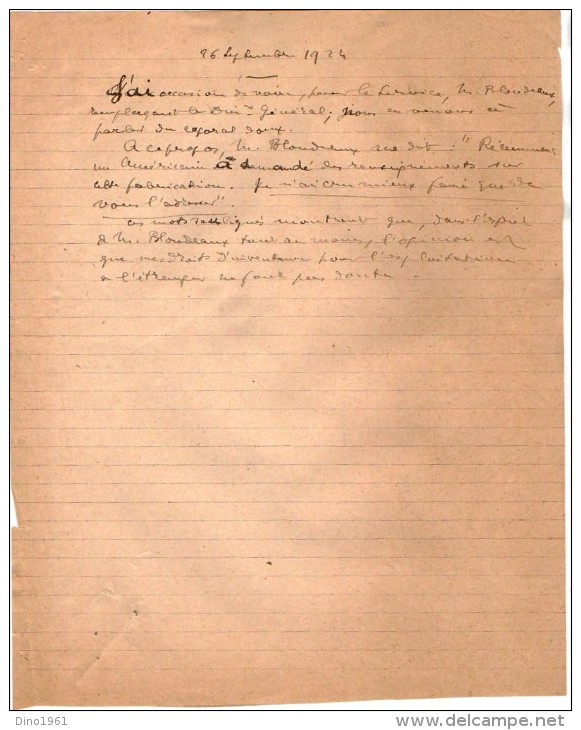 26 Septembre 1924
J'ai occasion de voir, pour le Service, M. Blondeaux,
remplaçant le Dirr Général; nous en venons à
parler du caporal doux.
A ce propos, M. Blondeaux me dit : "Récemment
un Américain a demandé des renseignements sur
cette fabrication. Je n'ai cru mieux faire que de
vous l'adresser".
ces mots montrent que, dans l'esprit
de M. Blondeaux tout au moins, l'opinion est
que mes droits d'inventeur pour l'exploitation
à l'étranger ne font pas doute.
Dino1961
www.delcampe.net